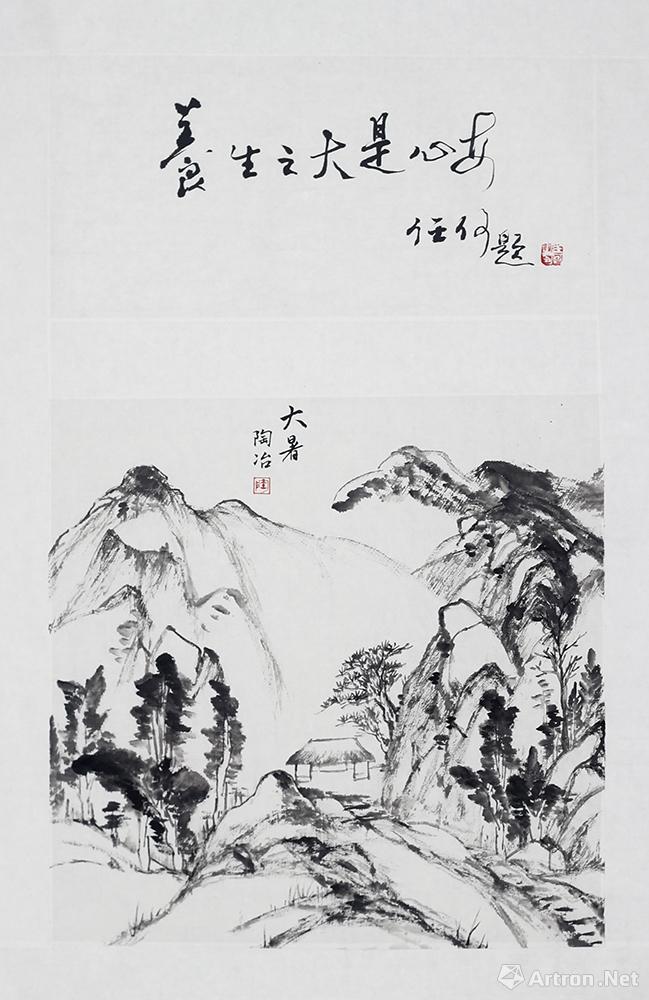 養生之大是心安
任何題
大暑
陶冶
Artron.Net